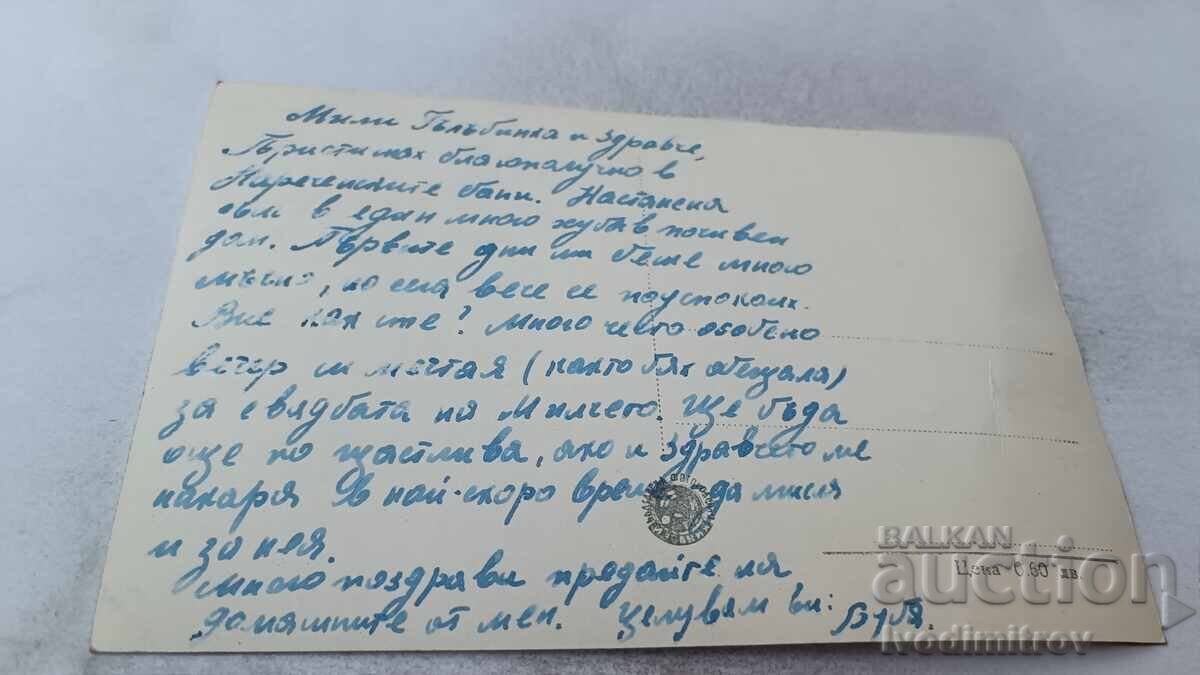 Мили Гълъбинка и Здравче,
Пристигнах благополучно в
Нареченските бани. Настанена
съм в един много хубав почивен
дом. Първите дни ми беше много
мъчно, но сега вече се поуспокоих.
Вие как сте? Много често особено
вечер си мечтая (както бях обещала)
за сватбата на Милчето. Ще бъда
още по щастлива, ако и Здравчето ме
накара в най-скоро време да мисля
и за нея.
Много поздрави предайте на
домашните от мен. Целувам ви:
Цена 0.60 лв.
BALKAN
auction
ivodimitrov